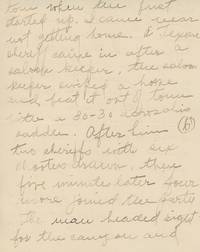 town when the first
started up, I came near
not getting home. A
sheriff came in after a
saloon keeper, the saloon
keeper swiped a horse
and beat it out of town
with a 30-30 across his
saddle. After him (6)
two sheriffs with six
shooters drawn, then
five minutes later four
more joined the party
The man headed right
for the canyon and